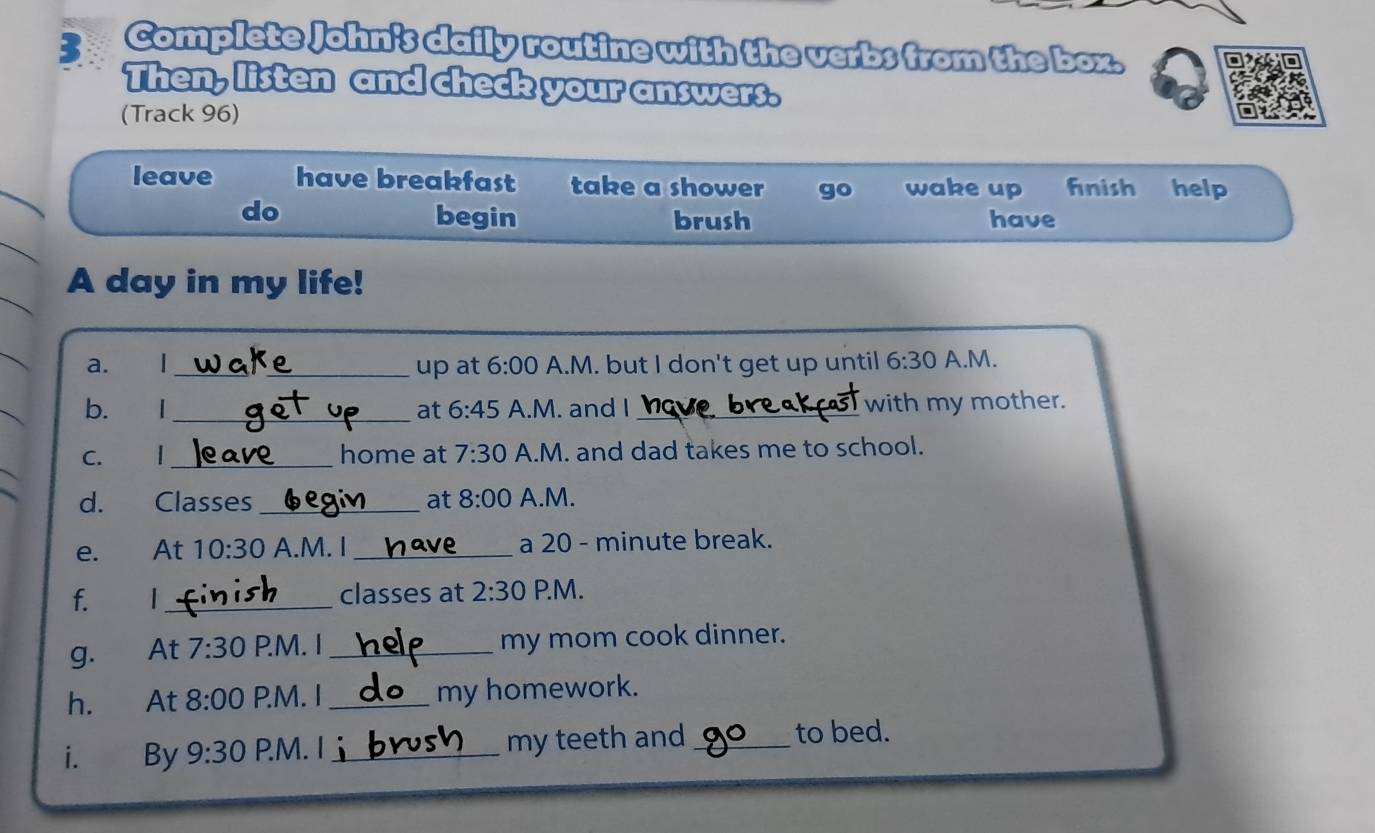 3 Complete John's daily routine with the verbs from the box.
Then, listen and check your answers.
(Track 96)
leave have breakfast take a shower go wake up finish help
do begin brush have
A day in my life!
a. I wake up at 6:00 A.M. but I don't get up until 6:30 A.M.
b. I get up at 6:45 A.M. and I have breakfast with my mother.
c. I leave home at 7:30 A.M. and dad takes me to school.
d. Classes begin at 8:00 A.M.
e. At 10:30 A.M. I have a 20 - minute break.
f. I finish classes at 2:30 P.M.
g. At 7:30 P.M. I help my mom cook dinner.
h. At 8:00 P.M. I do my homework.
i. By 9:30 P.M. I i brush my teeth and go to bed.